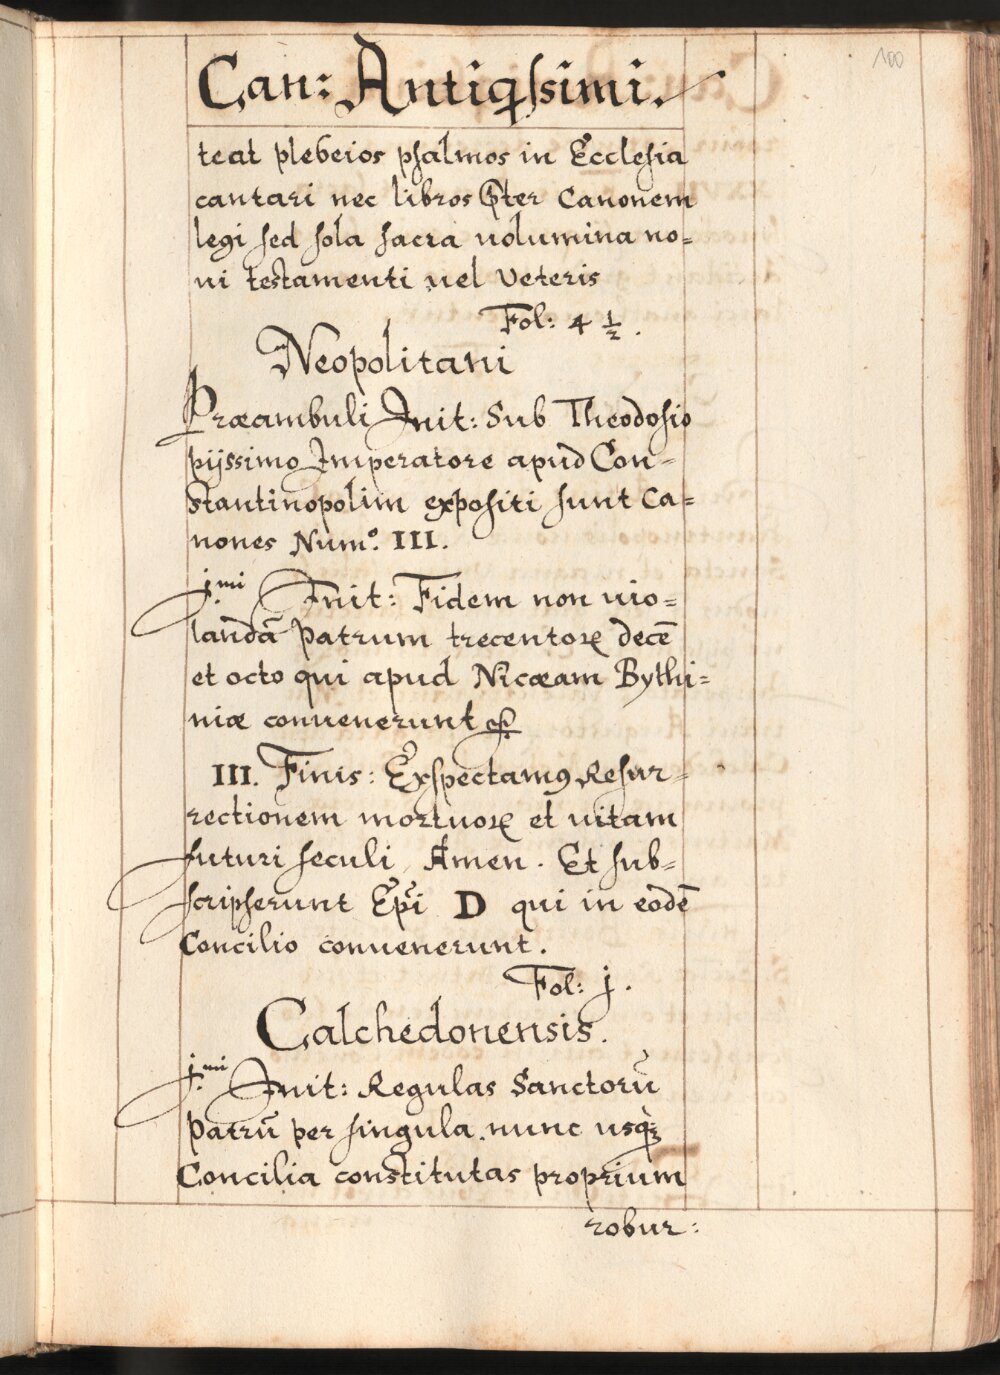 100
Can: Antiqssimi.
teat plebeios psalmos in Ecclesia
cantari nec libros pter Canonem
legi sed sola sacra uolumina no=
ui testamenti uel Veteris
Fol: 4 1/2.
Neopolitani
Præambuli Init: Sub Theodosio
pijssimo Imperatore apud Con=
stantinopolim expositi sunt Ca=
nones Num.º III.
j.mi Init: Fidem non uio=
landā Patrum trecentoꝝ decē
et octo qui apud Nicæam Bythi=
niæ conuenerunt
III. Finis: Exspectamꝰ Resur=
rectionem mortuoꝝ et uitam
futuri seculi Amen. Et sub=
scripserunt Ep̄i D qui in eodē
Concilio conuenerunt.
Fol: j.
Calchedonensis.
j.mi Init: Regulas Sanctorū
Patrū per singula nunc usqꝫ
Concilia constitutas proprium
robur: